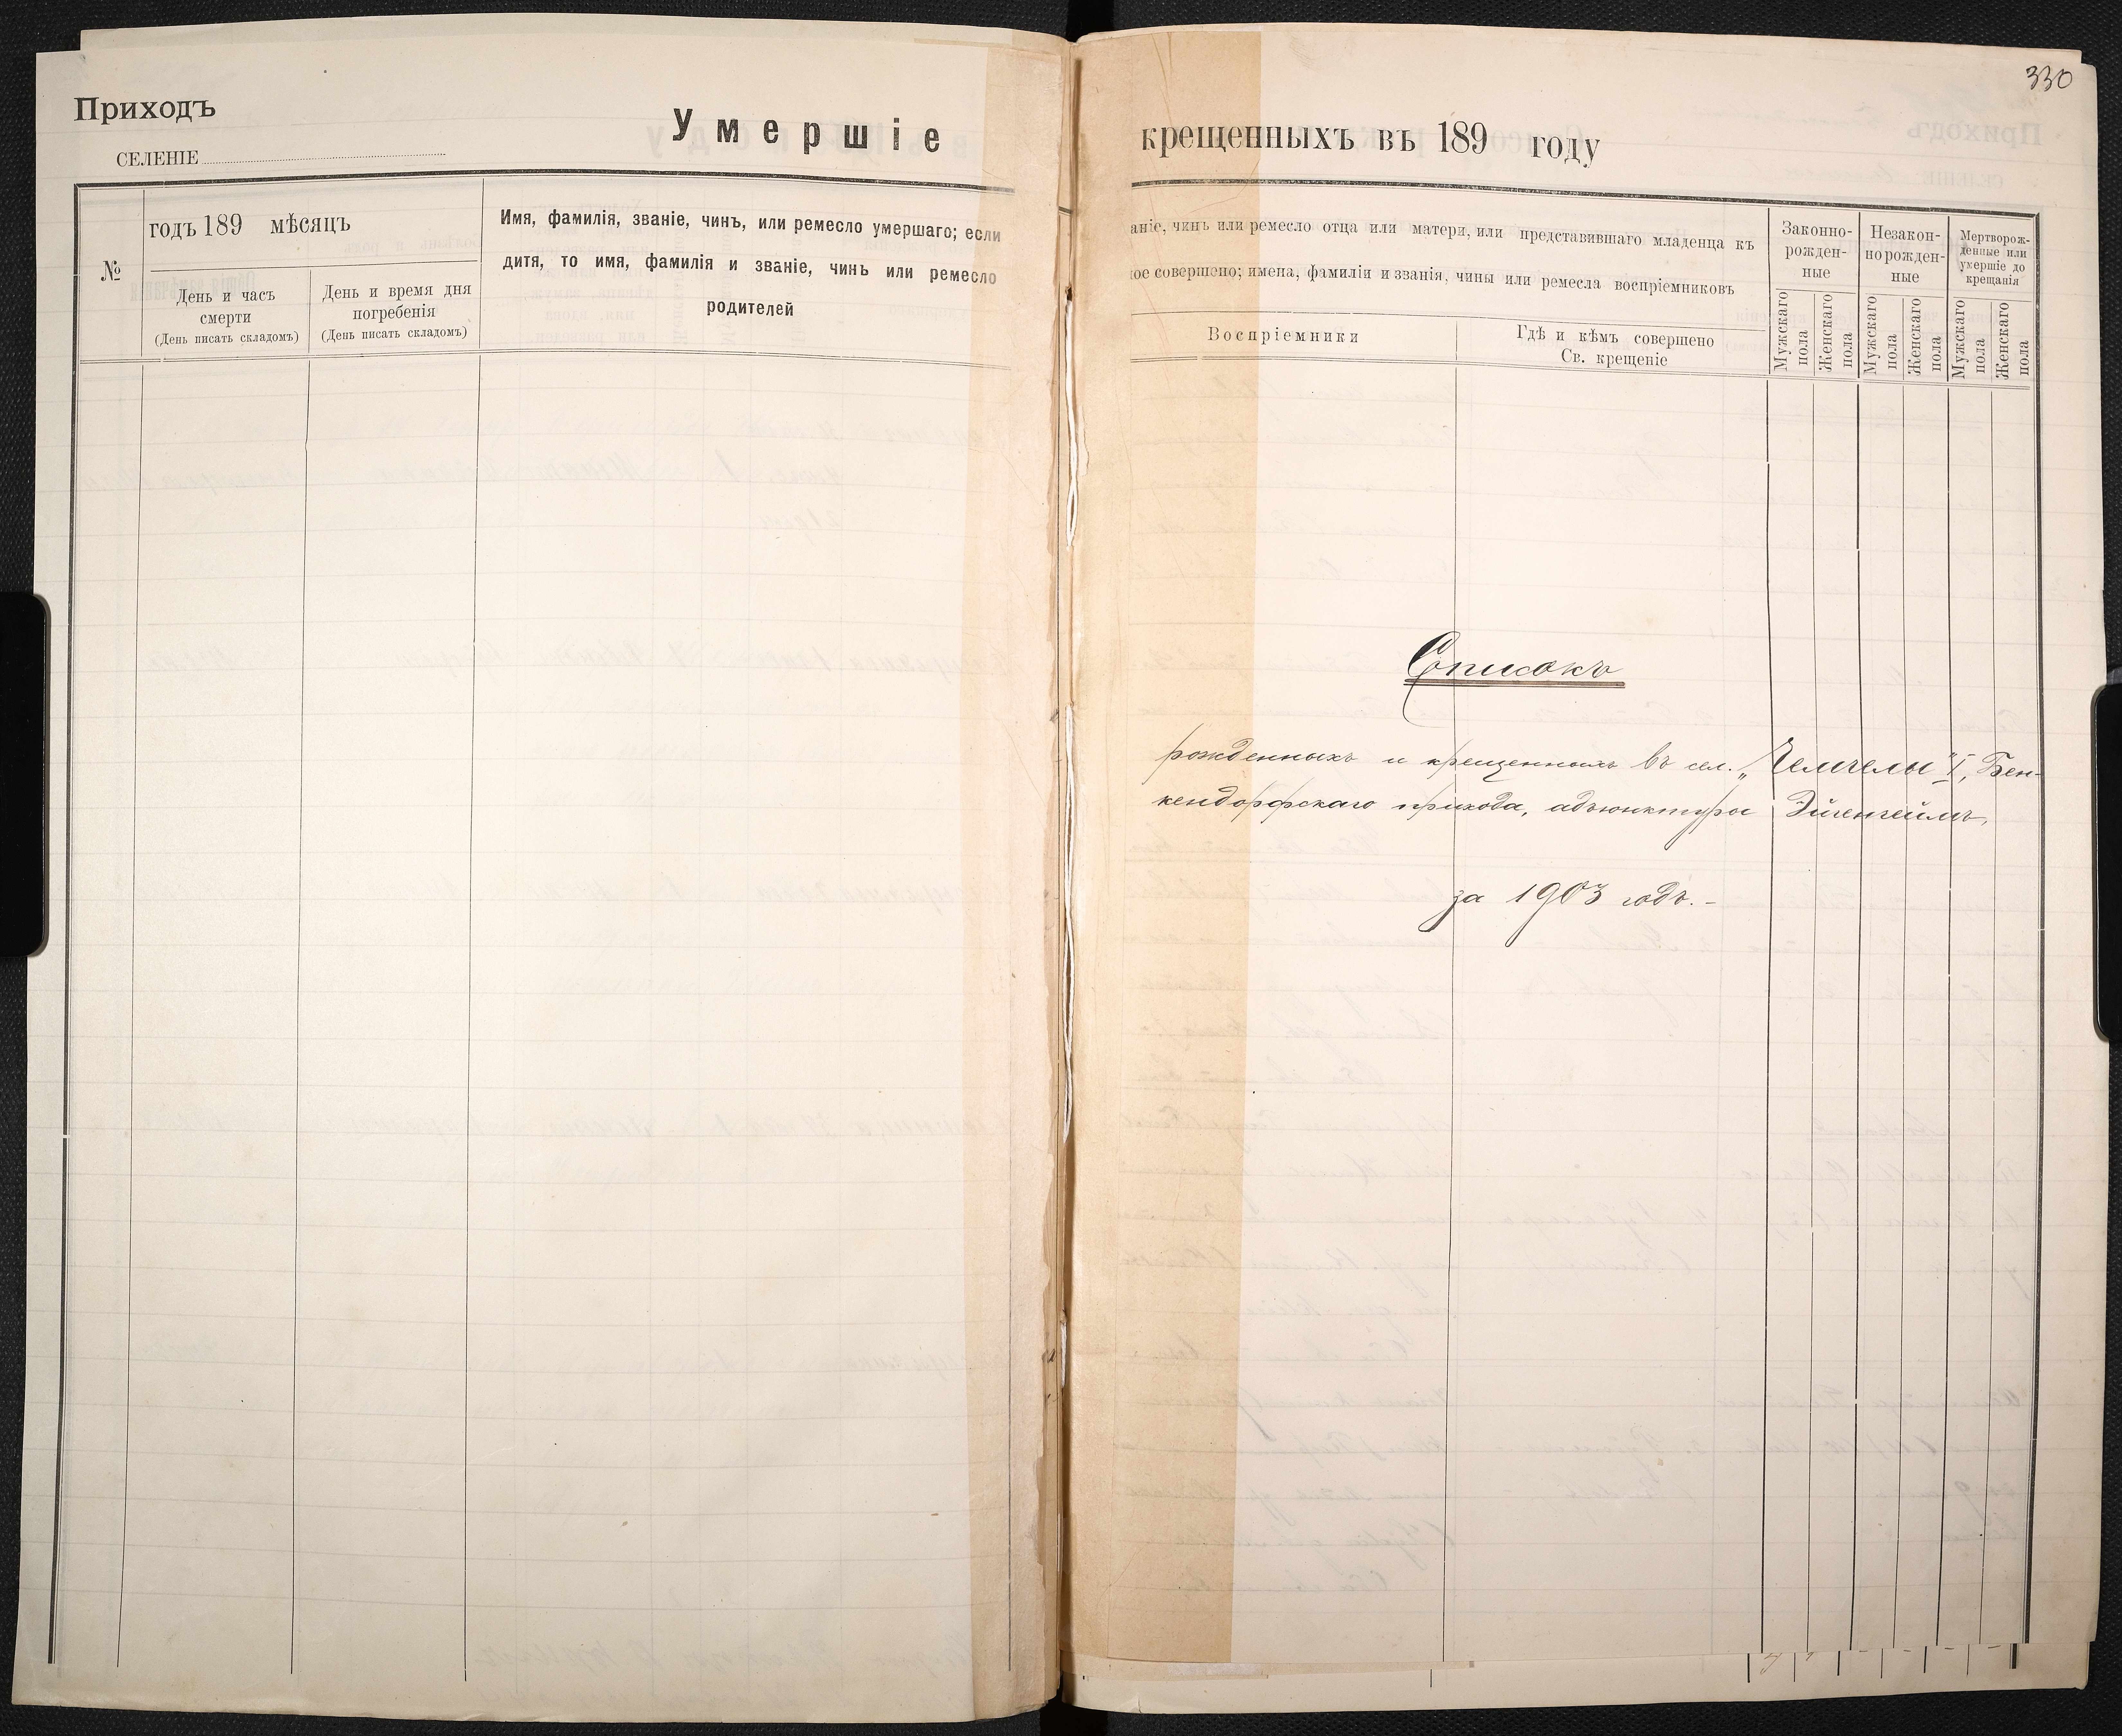 Приходъ
СЕЛЕНІЕ
Умершіе
№
годъ 189 мѣсяцъ
День и часъ
смерти
(День писать складомъ)
День и время дня
погребенія
(День писать складомъ)
Имя, фамилія, званіе, чинъ, или ремесло умершаго; если
дитя, то имя, фамилія и званіе, чинъ или ремесло
родителей
330
крещенныхъ въ 189 году
аніе, чинъ или ремесло отца или матери, или представившаго младенца къ
ое совершено; имена, фамиліи и званія, чины или ремесла воспріемниковъ
Воспріемники
Гдѣ и кѣмъ совершено
Св. крещеніе
Законно-
рожден-
ные
Незакон-
норожден-
ные
Мертворож-
денные или
умершіе до
крещанія
Мужскаго
пола
Женскаго
пола
Мужскаго
пола
Женскаго
пола
Мужскаго
пола
Женскаго
пола
Списокъ
рожденныхъ и крещенныхъ въ сел. „Чемчелы" I, Бен-
кендорфскаго прихода, адъюнктуры Эйгенгеймъ,
за 1903 годъ.-